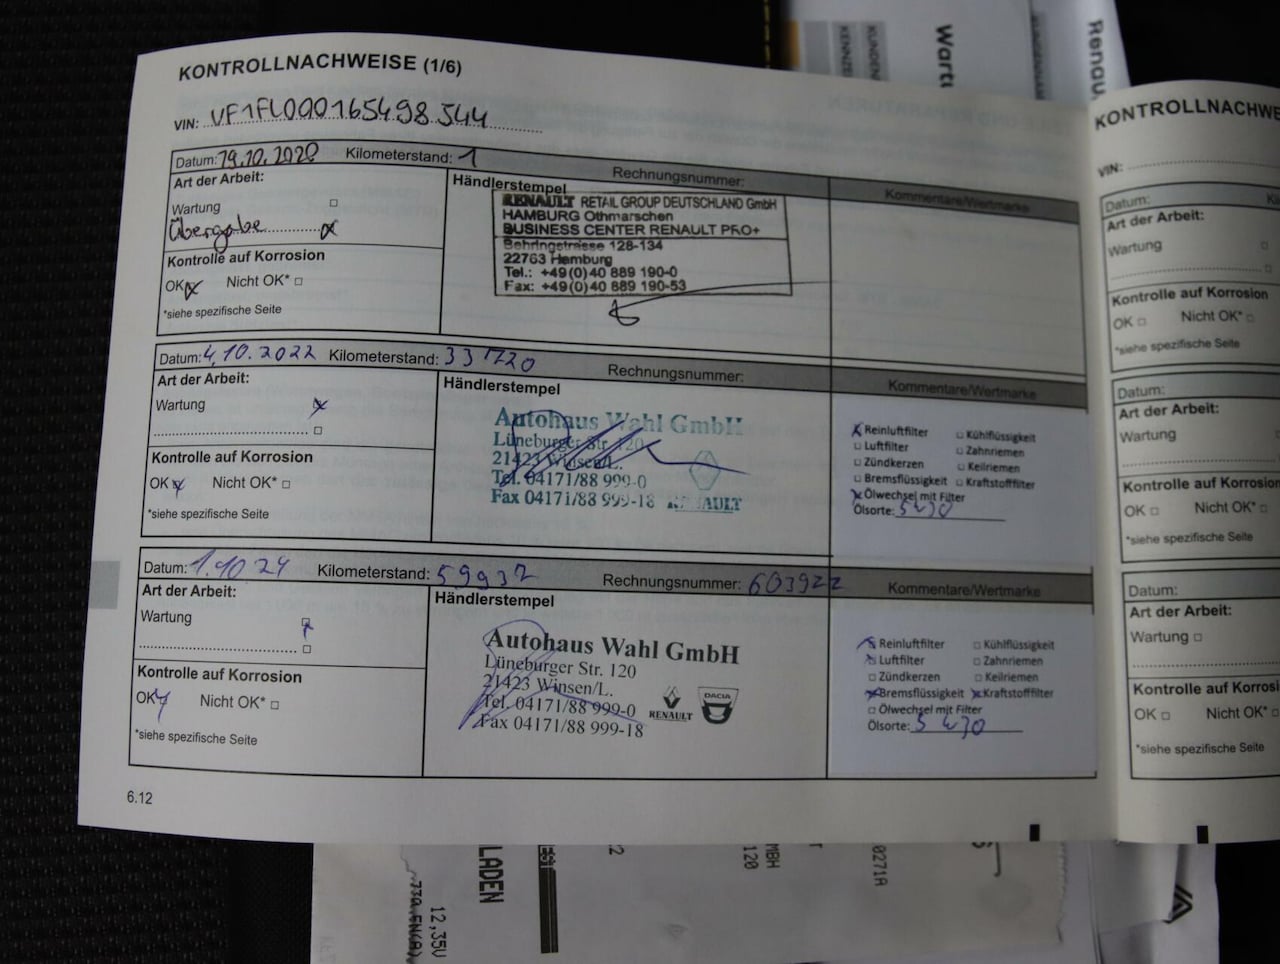 KONTROLLNACHWEISE (1/6)
VIN: VF1FL000165498544
Datum: 19.10.2020 Kilometerstand: 1 Rechnungsnummer:
Art der Arbeit:
Wartung
Übergabe
Kontrolle auf Korrosion
OK Nicht OK*
*siehe spezifische Seite
Händlerstempel
RENAULT RETAIL GROUP DEUTSCHLAND GmbH
HAMBURG Othmarschen
BUSINESS CENTER RENAULT PRO+
Behringstrasse 128-134
22763 Hamburg
Tel.: +49(0)40 889 190-0
Fax: +49(0)40 889 190-53
Kommentare/Wertmarke
Datum: 4.10.2022 Kilometerstand: Rechnungsnummer:
Art der Arbeit:
Wartung
Kontrolle auf Korrosion
OK Nicht OK*
*siehe spezifische Seite
Händlerstempel
Autohaus Wahl GmbH
Lüneburger Str. 120
21423 Winsen/L.
Tel. 04171/88 999-0
Fax 04171/88 999-18 RENAULT
Kommentare/Wertmarke
Reinluftfilter Kühlflüssigkeit
Luftfilter Zahnriemen
Zündkerzen Keilriemen
Bremsflüssigkeit Kraftstofffilter
Ölwechsel mit Filter
Ölsorte: 5W30
Datum: 1.10 24 Kilometerstand: 59937 Rechnungsnummer: 603922
Art der Arbeit:
Wartung
Kontrolle auf Korrosion
OK Nicht OK*
*siehe spezifische Seite
Händlerstempel
Autohaus Wahl GmbH
Lüneburger Str. 120
21423 Winsen/L.
Tel. 04171/88 999-0
Fax 04171/88 999-18
RENAULT
DACIA
Kommentare/Wertmarke
Reinluftfilter Kühlflüssigkeit
Luftfilter Zahnriemen
Zündkerzen Keilriemen
Bremsflüssigkeit Kraftstofffilter
Ölwechsel mit Filter
Ölsorte: 5W30
6.12
KONTROLLNACHWE
VIN:
Datum:
Art der Arbeit:
Wartung
Kontrolle auf Korrosion
OK Nicht OK*
*siehe spezifische Seite
Datum:
Art der Arbeit:
Wartung
Kontrolle auf Korrosion
OK Nicht OK*
*siehe spezifische Seite
Datum:
Art der Arbeit:
Wartung
Kontrolle auf Korrosi
OK Nicht OK*
*siehe spezifische Seite
KUNDEN
KENNZEI
Wart
Renau
LADEN
12,35V
MBH
120
0271A